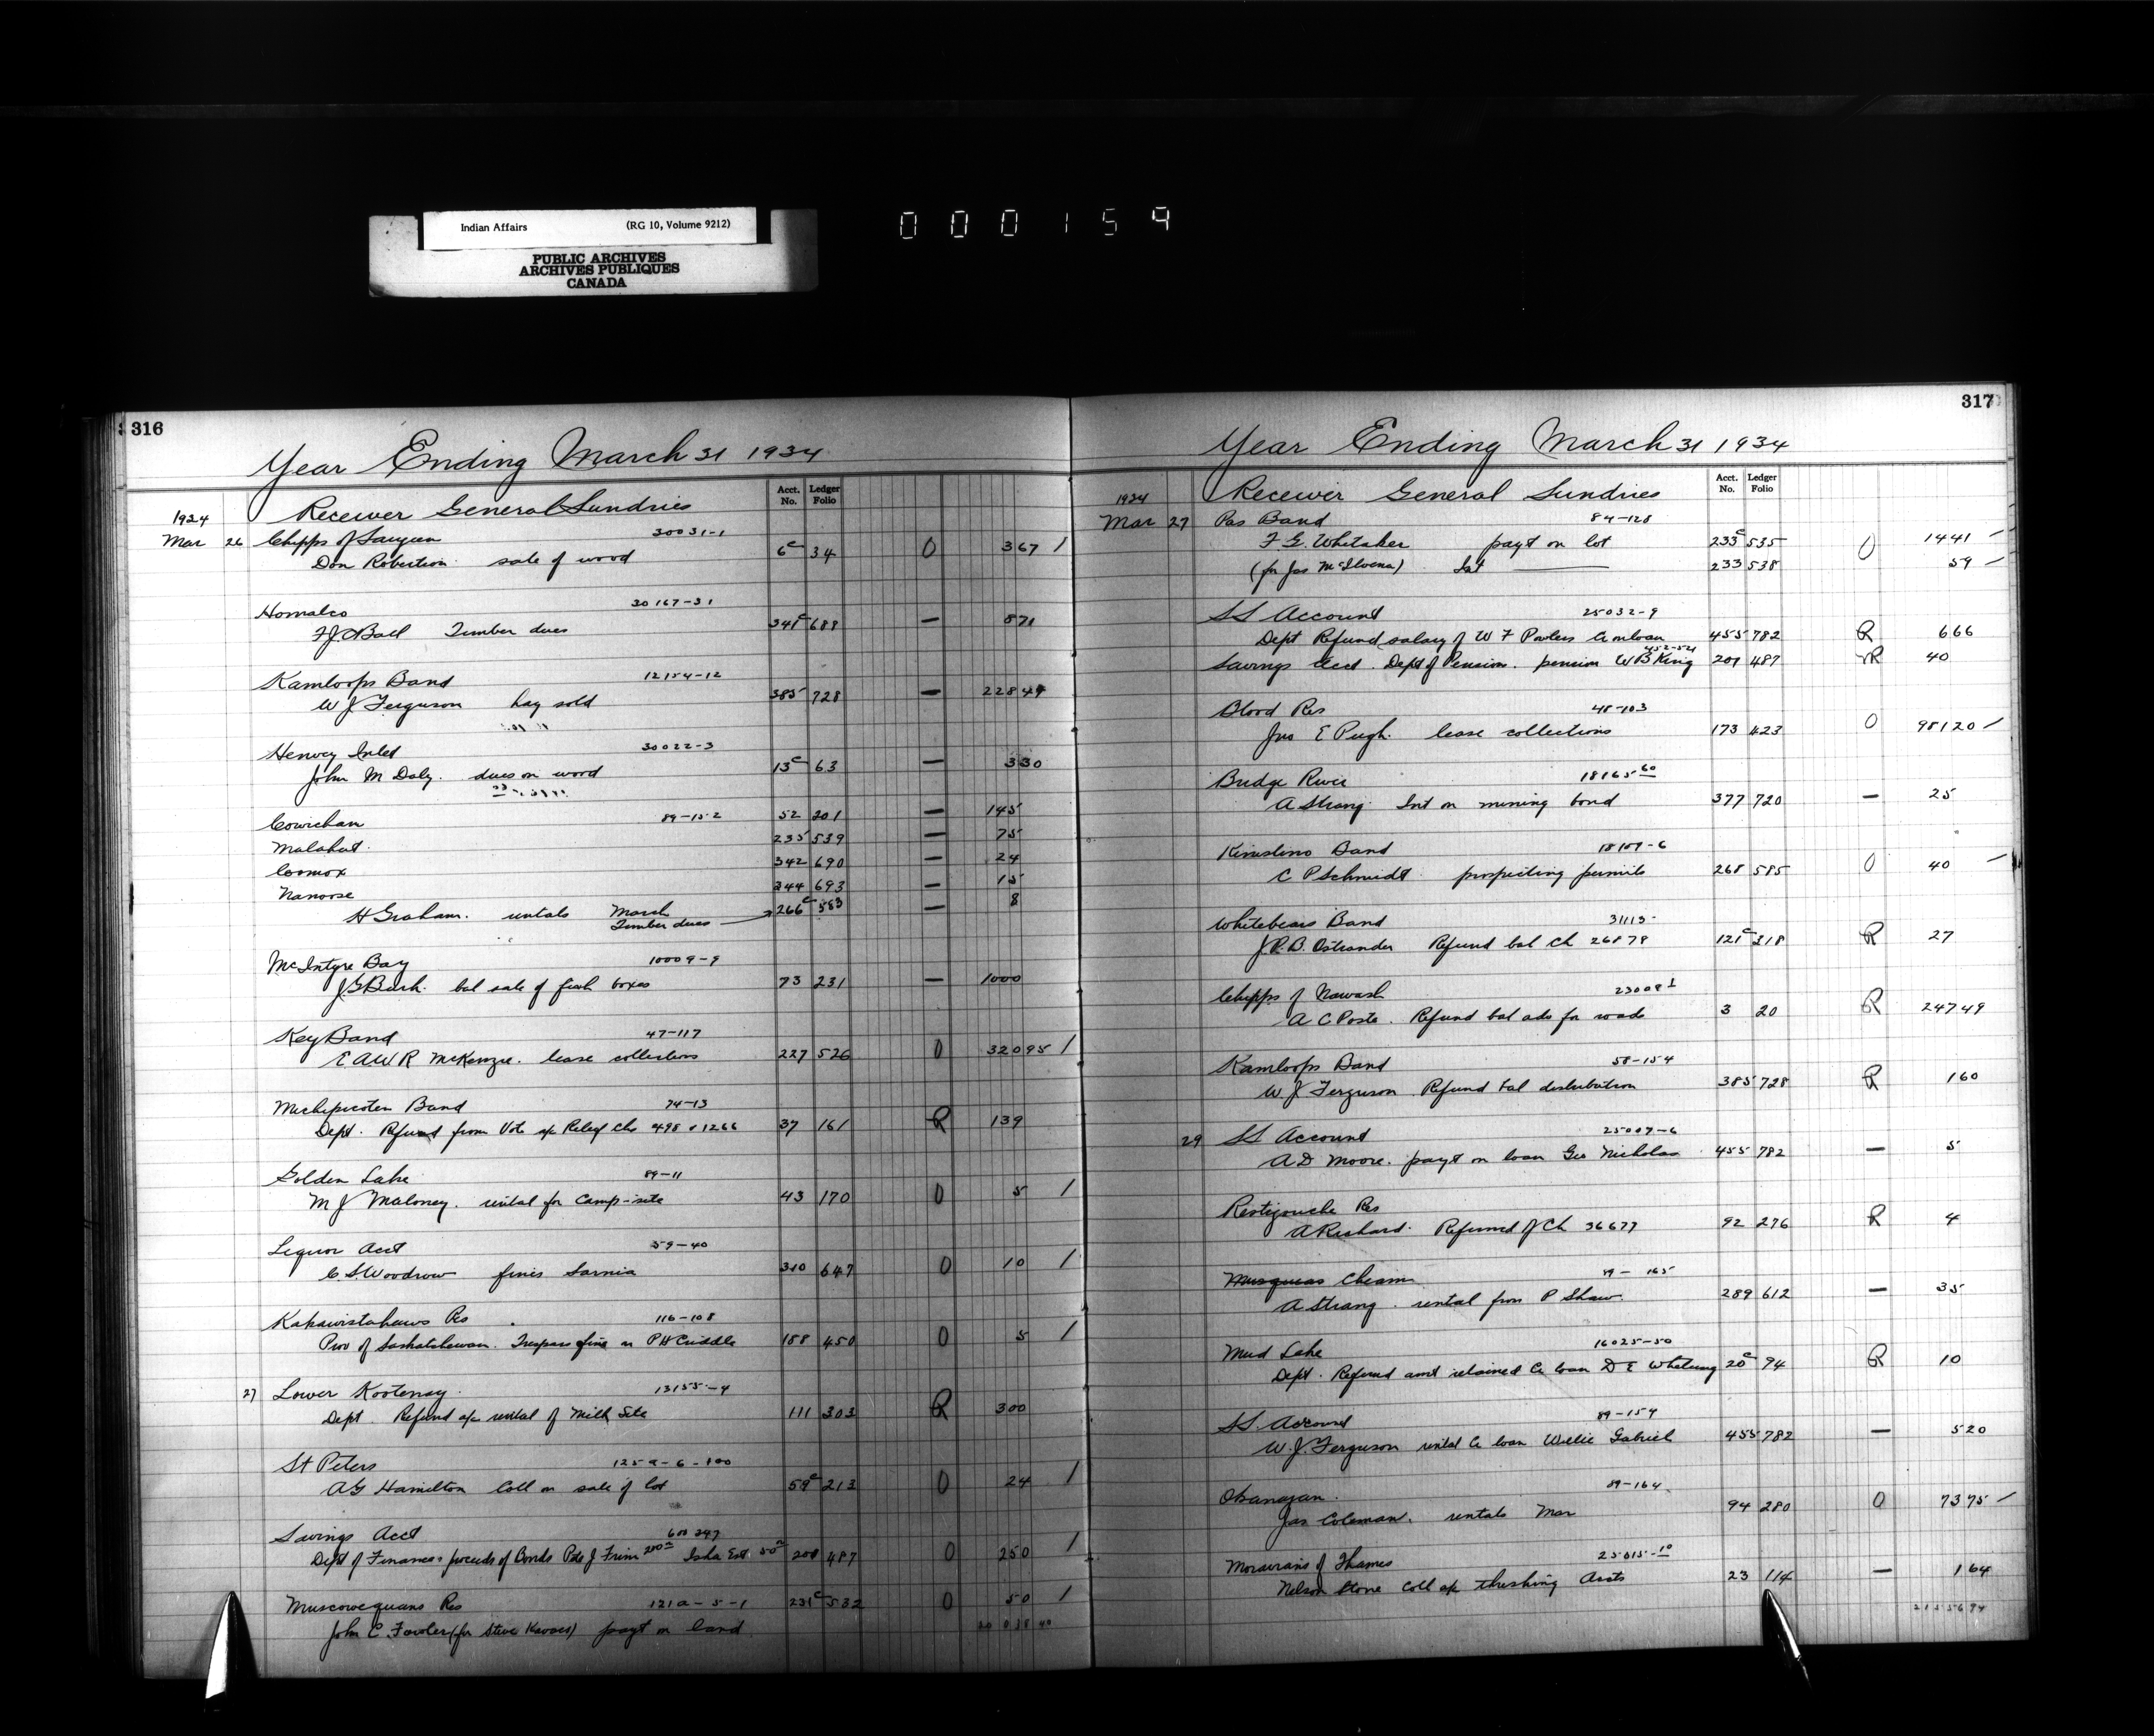 Indian Affairs (RG 10, Volume 9212)
PUBLIC ARCHIVES
ARCHIVES PUBLIQUES
CANADA
000159
316
Year Ending March 31 1934
Acct. No. Ledger Folio
1934 Receiver General Sundries
Mar 26 Chipps of Saugeen 30031-1
Don Robertson sale of wood 6c 34 O 367 /
Homalco 30167-31
F.J.C. Ball Timber dues 341c 688 — 871
Kamloops Band 12154-12
W J Ferguson hay sold 385 728 — 22849
Henvey Inlet 30022-3
John M Daly. dues on wood 13c 63 — 330
Cowichan 89-152 52 201 — 145
Malahat. 235 539 — 75
Comox 342 690 — 24
Nanoose 344 693 — 15
H Graham. rentals March
Timber dues 266c 583 — 8
McIntyre Bay 10009-9
J.G. Burk. bal sale of fish boxes 73 231 — 1000
Key Band 47-117
E A W R McKenzie. lease collections 227 526 O 32095 /
Michipicoten Band 74-13
Dept. Refund from Vote a/c Relief Chs 498 & 1266 37 161 R 139
Golden Lake 89-11
M J Maloney. rental for Camp-site 43 170 O 5 /
Liquor Acct 59-40
C. S. Woodrow fines Sarnia 310 647 O 10 /
Kakawistahaws Res 116-108
Prov of Saskatchewan. Trespass fine on P H Criddle 188 450 O 5 /
27 Lower Kootenay. 13155-4
Dept. Refund a/c rental of Mill Site 111 303 R 300
St Peters 125a-6-100
A G Hamilton Coll on sale of lot 59c 213 O 24 /
Savings Acct 600 247
Dept of Finance proceeds of Bonds J 200 Est 50 201 487 O 250 /
Muscowequans Res 121a-5-1 231c 532 O 50 /
John C. Fowler (for Steve Kavacs) payt on land
317
Year Ending March 31 1934
Acct. No. Ledger Folio
1934 Receiver General Sundries
Mar 27 Pas Band 84-128
F G. Whitaker payt on lot 233c 535 O 1441
(for Jas McIlvena) Int 233 538 59
SS Account 25032-9
Dept Refund salary of W F Powless a/c loan 455 782 R 666
452-54
Savings Acct. Dept of Pension. pension W B King 201 487 R 40
Blood Res 48-103
Jno E Pugh. lease collections 173 423 O 98120
Bridge River 18165-60
A Strang. Int on mining bond 377 720 — 25
Band 18107-6
C P Schmidt prospecting permits 268 585 O 40
Whitebears Band 31113-
J.P.B. Ostrander Refund bal Ch 26878 121c 318 R 27
Chipps of Nawash 23008-1
A C Poste. Refund bal adv for roads 3 20 R 24749
Kamloops Band 58-154
W J Ferguson Refund bal distribution 385 728 R 160
29 SS Account 25007-6
A D Moore. payt on loan Geo Nicholas 455 782 — 5
Restigouche Res
A Richard. Refund of Ch 36677 92 276 R 4
Musqueas Cheam 89-165
A Strang. rental from P Shaw. 289 612 — 35
Mud Lake 16025-50
Dept. Refund amt retained a/c loan D E Whetung 20c 94 R 10
SS. Account 89-159
W. J. Ferguson rental a/c loan Willie Gabriel 455 782 — 520
Okanagan. 89-164
Jas Coleman. rentals Mar 94 280 O 7375
Moravians of Thames 25015-10
Nelson Stone Coll a/c threshing Accts 23 114 — 164